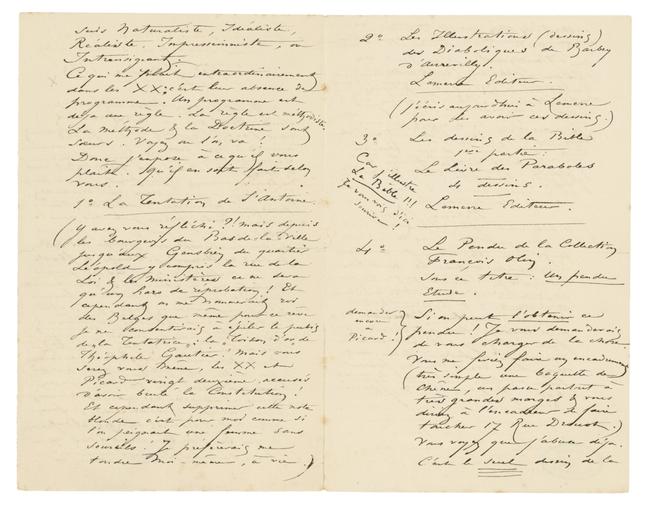 suis Naturaliste, Idéaliste,
Réaliste, Impressionniste, ou
Intransigeant.
Ce qui me plait extraordinairement
dans les XX: c'est leur absence de
programme. Un programme est
déja une règle. La règle est méthodiste.
La méthode & la Doctrine sont
sœurs. Voyez où l'on va!
Donc j'expose à ce qu'il vous
plaira. Qu'il en soit fait selon
vous.
1º La Tentation de St Antoine.
(Y avez vous réfléchi?! mais depuis
les bourgeois du Bas de la Ville
jusqu'aux du quartier
Léopold y compris la rue de la
Loi & les Ministères ce ne sera
qu'un haro de réprobation! Et
cependant on me nommerait roi
des Belges que même pour ce rêve
je ne consentirais à épiler le pubis
de la Tentatrice; la toison d'or de
Théophile Gautier! Mais vous
serez vous même, les XX et
Picard vingt deuxième accusés
d'avoir la Constitution!
Et cependant supprimer cette note
blonde c'est pour moi comme si
l'on peignait une femme sans
sourcils! Je préfèrerais me
tondre moi-même, à vie.)
2º Les Illustrations (dessins)
des Diaboliques de Barbey
d'Aurevilly.
Lemerre Editeur.
(j'écris aujourd'hui à Lemerre
pour les avoir ces dessins.)
3º Les dessins de la Bible
1ère partie:
Le Livre des Paraboles
4 dessins.
Lemerre Editeur.
Car j'illustre
La Bible!!!
Je vous vois d'ici
sourire!
4º Le Pendu de la Collection
François
Sous ce titre: Un pendu
Etude.
demander
encore
à
Picard!
Si on peut l'obtenir ce
pendu! Je vous demanderais
de vous charger de la chose
Vous me feriez faire un encadrement
(très simple une baguette de
Chêne, un passe partout à
très grandes marges & vous
direz à l'encadreur de faire
toucher 17 Rue Drouot.)
Vous voyez que j'abuse déja.
C'est le seul dessin de la